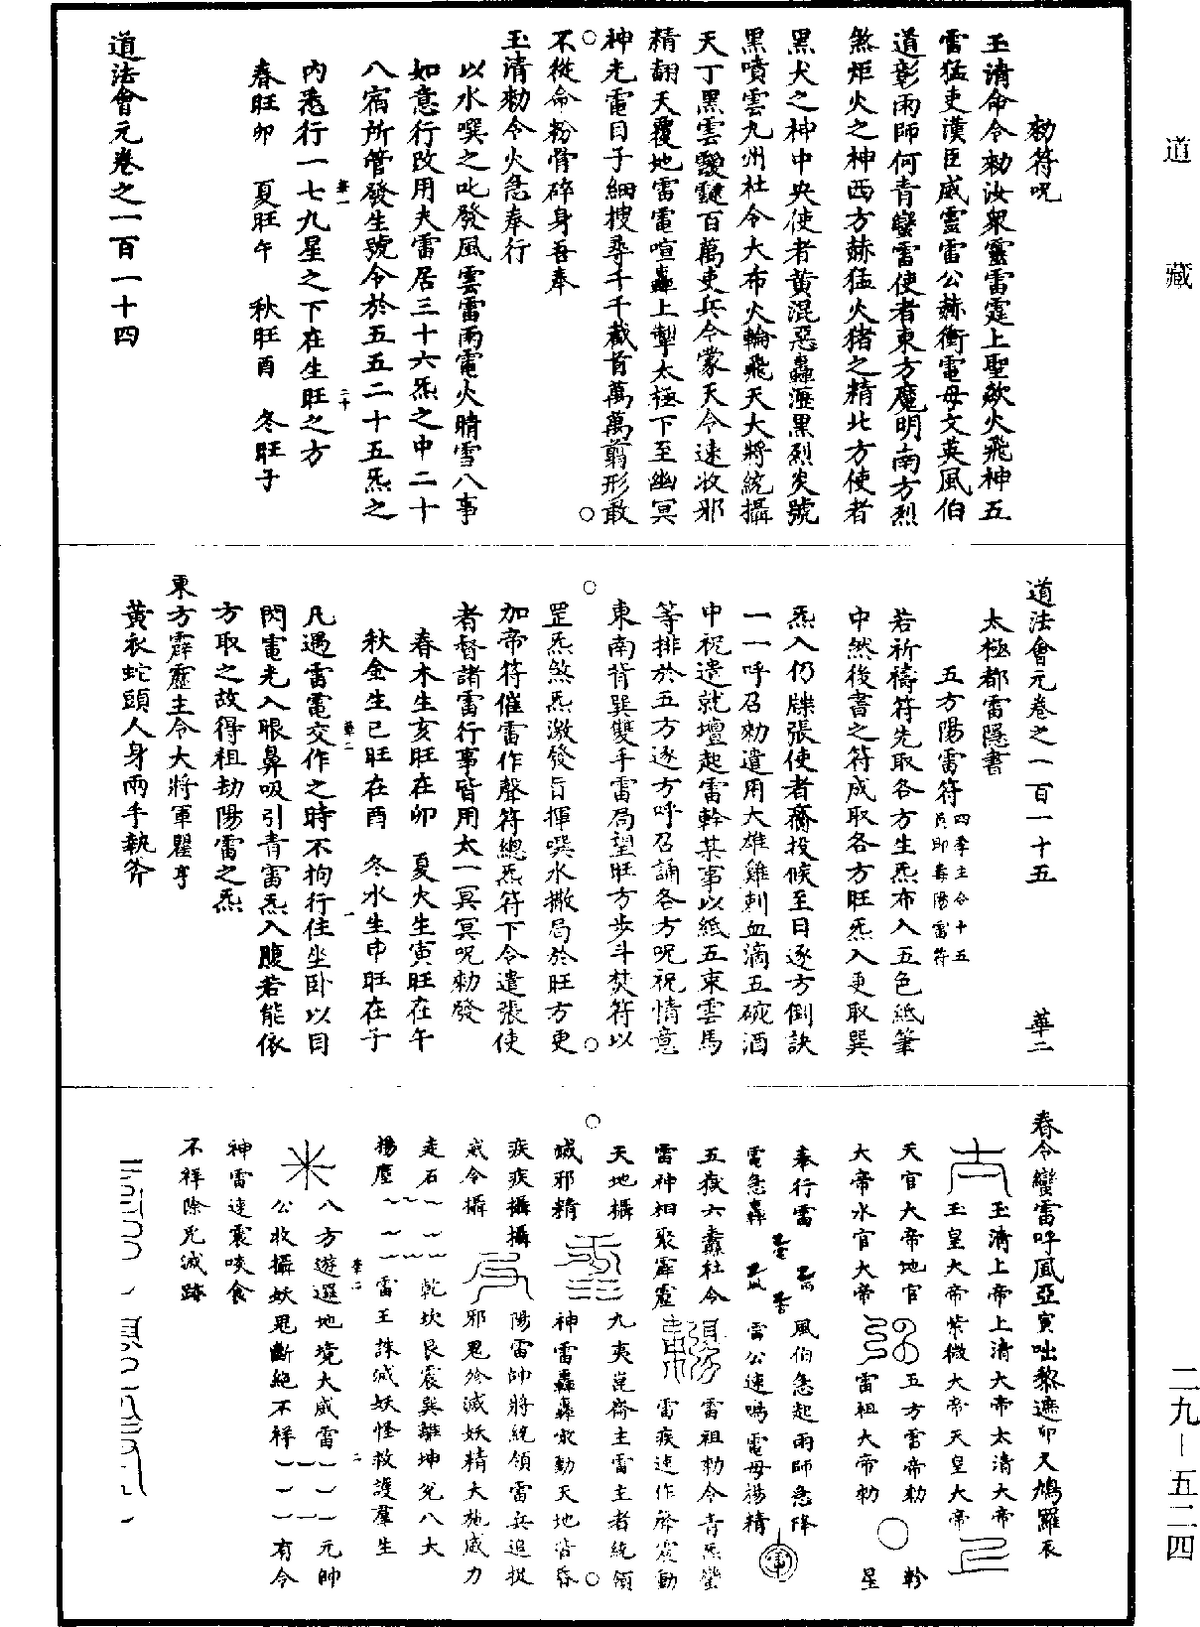 道藏
二九-五二四
勑符呪
玉清命令勑汝眾靈雷霆上聖歘火飛神五
雷猛吏漢臣威靈雷公赫衝電母文英風伯
道彰雨師何青蠻雷使者東方魔明南方烈
煞炬火之神西方赫猛火猪之精北方使者
黑犬之神中央使者黃混惡轟涯黑烈炎號
黑噴雲九州杜令大布火輪飛天大將統攝
天丁黑雲靉靆百萬吏兵令蒙天令速收邪
精翻天覆地雷電喧轟上掣太極下至幽冥
神光電目子細搜尋千千截首萬萬翦形敢
不從命粉骨碎身吾奉
玉清勑令火急奉行
以水噀之叱發風雲雷雨電火晴雪八事
如意行改用夫雷居三十六炁之中二十
八宿所管發生號令於五五二十五炁之
內悉行一七九星之下在生旺之方
春旺卯　夏旺午　秋旺酉　冬旺子
道法會元卷之一百一十四
道法會元卷之一百一十五　華二
太極都雷隱書
五方陽雷符四季主令十五員即壽陽雷符
若祈禱符先取各方生炁布入五色紙筆
中然後書之符成取各方旺炁入更取巽
炁入仍牒張使者齎投候至日逐方倒訣
一一呼召勑遣用大雄雞剌血滴五碗酒
中祝遣就壇起雷幹某事以紙五束雲馬
等排於五方逐方呼召誦各方呪祝情意
東南背巽雙手雷局望旺方步斗焚符以
罡炁煞炁激發旨揮噀水撒局於旺方更
加帝符催雷作聲符總炁符下令遣張使
者督諸雷行事皆用太一冥冥呪勑發
春木生亥旺在卯　夏火生寅旺在午
秋金生巳旺在酉　冬水生申旺在子
凡遇雷電交作之時不拘行住坐卧以目
閃電光入眼鼻吸引青雷炁入腹若能依
方取之故得祖劫陽雷之炁
東方霹靂主令大將軍瞿亨
黃衣蛇頭人身兩手執斧
春令蠻雷呼風亞寅咄黎遮卯又鳩羅辰
玉清上帝上清大帝太清大帝
玉皇大帝紫微大帝天皇大帝
天官大帝地官
大帝水官大帝
五方雷帝勑
雷祖大帝勑
幹
星
奉行雷
電急轟
風伯急起雨師急降
雷公速鳴電母揚精
五嶽六纛社令
雷神相聚霹靂
雷祖勑令青炁蠻
雷疾速作聲震動
天地攝
九夷崑齋主雷主者統領
滅邪精
神雷轟轟歘動天地皆昏
疾疾攝攝
陽雷帥將統領雷兵追捉
威令攝
邪鬼殄滅妖精大施威力
走石
乾坎艮震巽離坤兌八大
揚塵
雷王誅滅妖怪救護羣生
八方遊邏地境大威雷
元帥
公收攝妖鬼斷絕不祥
有令
神雷速震啖食
不祥除兇滅跡